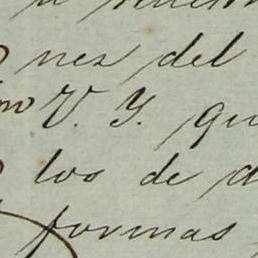 nes del
V. Y. qu
los de d
formas